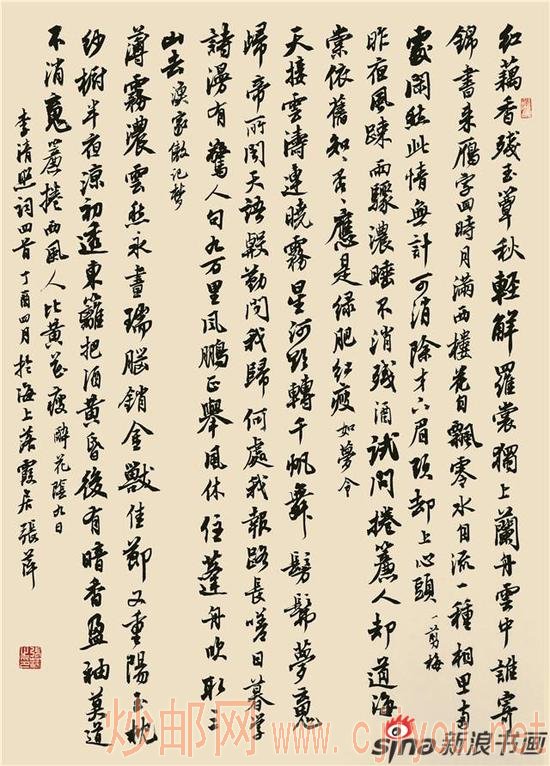 红藕香残玉簟秋輕解羅裳獨上蘭舟雲中誰寄
錦書来雁字回時月滿西樓花自飄零水自流一種相思兩
處閑愁此情無計可消除才下眉頭却上心頭 一剪梅
昨夜風疎雨驟濃睡不消残酒試問捲簾人却道海
棠依舊知々否々應是緑肥红瘦 如夢令
天接雲濤連曉霧星河欲轉千帆舞髣髴夢魂
歸帝所聞天語殷勤問我歸何處我報路長嗟日暮學
詩漫有驚人句九万里風鵬正舉風休住蓬舟吹取三
山去 漁家傲记夢
薄霧濃雲愁永晝瑞脳銷金獸佳節又重陽玉枕
紗橱半夜涼初透東籬把酒黄昏後有暗香盈袖莫道
不消魂簾捲西風人比黄花瘦 醉花陰九日
李清照词四首 丁酉四月於海上落霞居張萍
炒邮网 www.cjiyou.net
sina 新浪书画